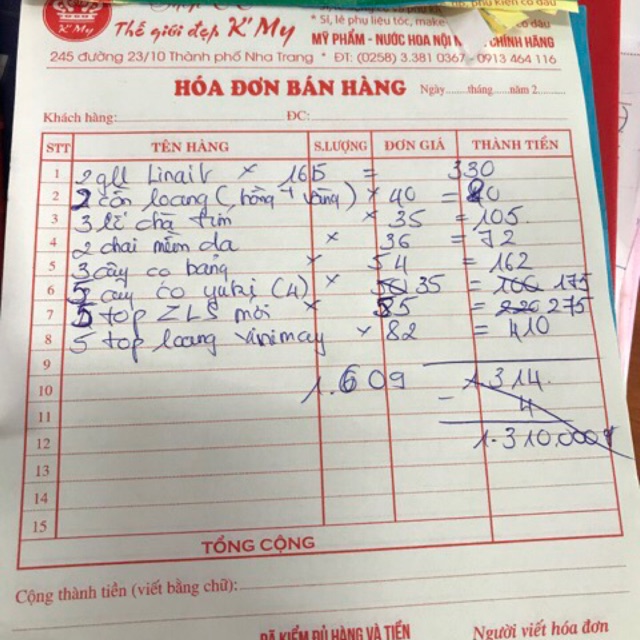 Thế giới đẹp K'My
K'My
* Sỉ, lẻ phụ liệu tóc, make
MỸ PHẨM - NƯỚC HOA NỘI CHÍNH HÃNG
245 đường 23/10 Thành phố Nha Trang * ĐT: (0258) 3.381 0367 - 0913 464 116
HÓA ĐƠN BÁN HÀNG Ngày......tháng.....năm 2.........
Khách hàng: ĐC:
STT TÊN HÀNG S.LƯỢNG ĐƠN GIÁ THÀNH TIỀN
1 2 gll Linait × 165 = 330
2 2 cồn loang (hồng + vàng) × 40 = 80
3 3 lì chà tím × 35 = 105
4 2 chai mềm da × 36 = 72
5 3 cây cọ bảng × 54 = 162
6 5 cây cọ yuki (4) × 35 = 175
7 5 top ZLS mới × 55 = 275
8 5 top loang vinimay × 82 = 410
9
10 1.609 1.314
11 - 4
12 1.310.000đ
13
14
15
TỔNG CỘNG
Cộng thành tiền (viết bằng chữ):
ĐÃ KIỂM ĐỦ HÀNG VÀ TIỀN Người viết hóa đơn